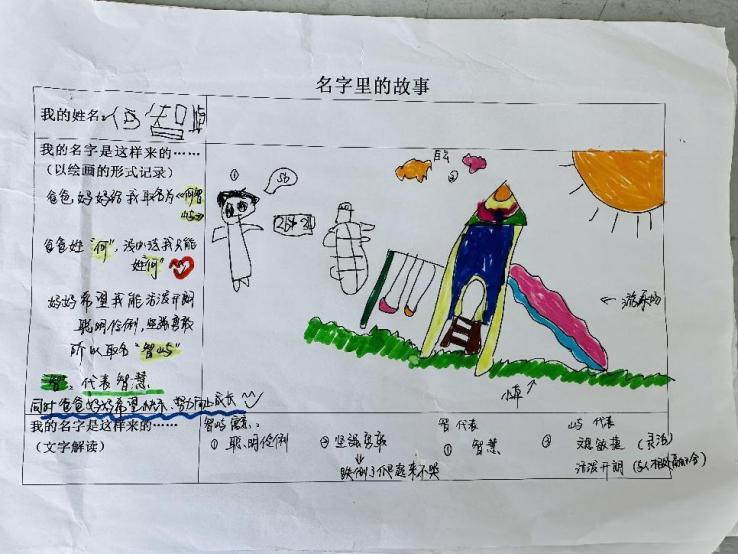 名字里的故事
我的姓名:何智屿
我的名字是这样来的……
(以绘画的形式记录)
爸爸,妈妈给我取名为<何智
屿>
爸爸姓"何",所以我只能
姓"何"
妈妈希望我能活泼开朗
聪明伶俐,坚强勇敢
所以取名"智屿"
智:代表智慧
同时爸爸妈妈希望 努力向上成长
①
②
白云
← 游乐场
小草
我的名字是这样来的……
(文字解读)
智屿寓意:
①聪明伶俐 ②坚强勇敢
跌倒了爬起来不哭
智代表
①智慧
屿 代表
② 敏捷(灵活)
活泼开朗